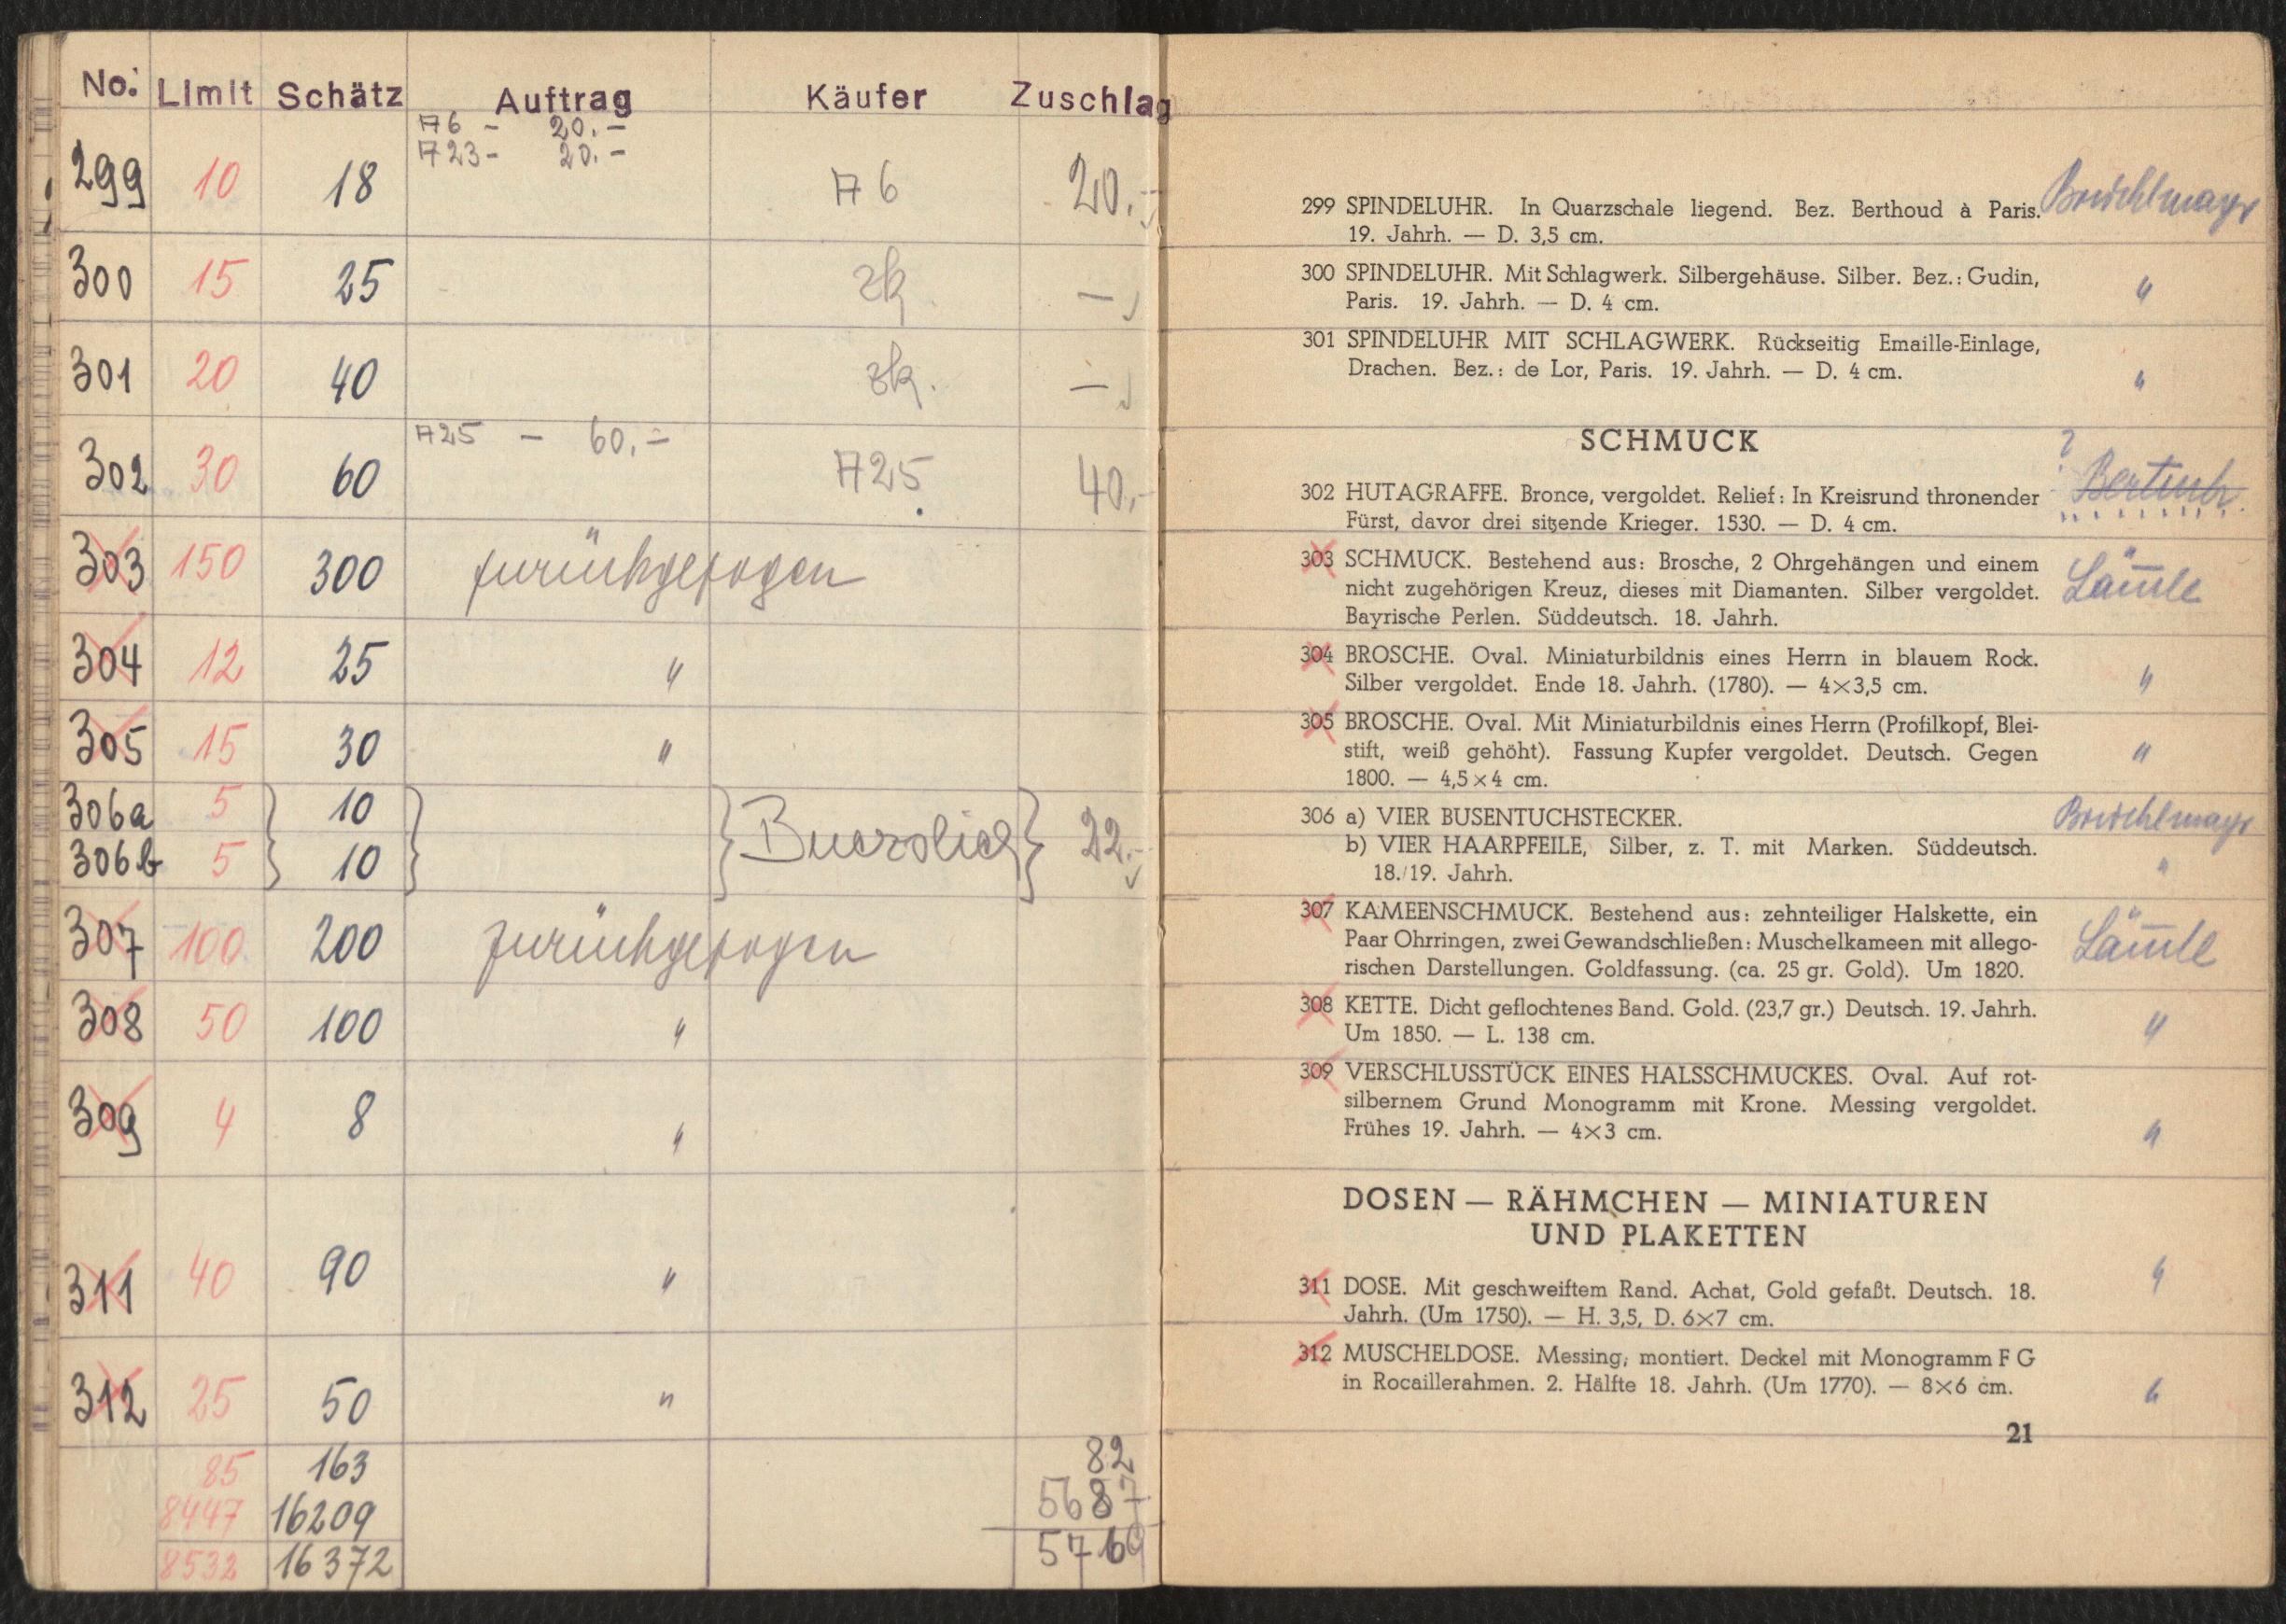 No. Limit Schätz Auftrag Käufer Zuschlag
A6 - 20.-
A23- 20.-
299 10 18 A6 20.-
300 15 25 zk -
301 20 40 zk. -
A25 - 60.-
302 30 60 A25 40.-
303 150 300 zurückgezogen
304 12 25 "
305 15 30 "
306a 5 10
306b 5 10 22.-
307 100 200 zurückgezogen
308 50 100 "
309 4 8 "
311 40 90 "
312 25 50 "
85 163 82
8447 16209 5687
8532 16372 5769
299 SPINDELUHR. In Quarzschale liegend. Bez. Berthoud à Paris.
19. Jahrh. — D. 3,5 cm.
300 SPINDELUHR. Mit Schlagwerk. Silbergehäuse. Silber. Bez.: Gudin, "
Paris. 19. Jahrh. — D. 4 cm.
301 SPINDELUHR MIT SCHLAGWERK. Rückseitig Emaille-Einlage,
Drachen. Bez.: de Lor, Paris. 19. Jahrh. — D. 4 cm. "
SCHMUCK
?
302 HUTAGRAFFE. Bronce, vergoldet. Relief: In Kreisrund thronender
Fürst, davor drei sitzende Krieger. 1530. — D. 4 cm.
303 SCHMUCK. Bestehend aus: Brosche, 2 Ohrgehängen und einem
nicht zugehörigen Kreuz, dieses mit Diamanten. Silber vergoldet. Läm̄le
Bayrische Perlen. Süddeutsch. 18. Jahrh.
304 BROSCHE. Oval. Miniaturbildnis eines Herrn in blauem Rock.
Silber vergoldet. Ende 18. Jahrh. (1780). — 4×3,5 cm. "
305 BROSCHE. Oval. Mit Miniaturbildnis eines Herrn (Profilkopf, Blei-
stift, weiß gehöht). Fassung Kupfer vergoldet. Deutsch. Gegen "
1800. — 4,5×4 cm.
306 a) VIER BUSENTUCHSTECKER.
b) VIER HAARPFEILE, Silber, z. T. mit Marken. Süddeutsch.
18./19. Jahrh. "
307 KAMEENSCHMUCK. Bestehend aus: zehnteiliger Halskette, ein
Paar Ohrringen, zwei Gewandschließen: Muschelkameen mit allego- Läm̄le
rischen Darstellungen. Goldfassung. (ca. 25 gr. Gold). Um 1820.
308 KETTE. Dicht geflochtenes Band. Gold. (23,7 gr.) Deutsch. 19. Jahrh.
Um 1850. — L. 138 cm. "
309 VERSCHLUSSTÜCK EINES HALSSCHMUCKES. Oval. Auf rot-
silbernem Grund Monogramm mit Krone. Messing vergoldet.
Frühes 19. Jahrh. — 4×3 cm. "
DOSEN — RÄHMCHEN — MINIATUREN
UND PLAKETTEN
311 DOSE. Mit geschweiftem Rand. Achat, Gold gefaßt. Deutsch. 18. "
Jahrh. (Um 1750). — H. 3,5, D. 6×7 cm.
312 MUSCHELDOSE. Messing, montiert. Deckel mit Monogramm F G
in Rocaillerahmen. 2. Hälfte 18. Jahrh. (Um 1770). — 8×6 cm. "
21